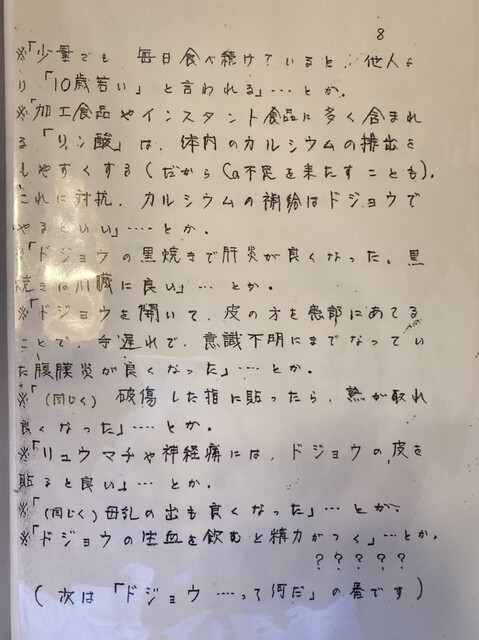 8
※「少量でも 毎日食べ続けていると、他人よ
り「10歳若い」と言われる」…とか。
※「加工食品やインスタント食品に多く含まれ
る「リン酸」は、体内のカルシウムの排出を
しやすくする(だからCa不足を来たすことも)。
これに対抗、カルシウムの補給はドジョウで
やるといい」……とか。
※「ドジョウの黒焼きで肝炎が良くなった。黒
焼きは川臓に良い」…とか。
※「ドジョウを開いて、皮の方を患部にあてる
ことで、手遅れで、意識不明にまでなってい
た腹膜炎が良くなった」…とか。
※「(同じく) 破傷した指に貼ったら、熱が取れ
良くなった」……とか。
※「リュウマチや神経痛には、ドジョウの皮を
貼ると良い」…とか。
※「(同じく)母乳の出も良くなった」…とか、
※「ドジョウの生血を飲むと精力がつく」…とか。
?????
(次は「ドジョウ……って何だ」の番です)